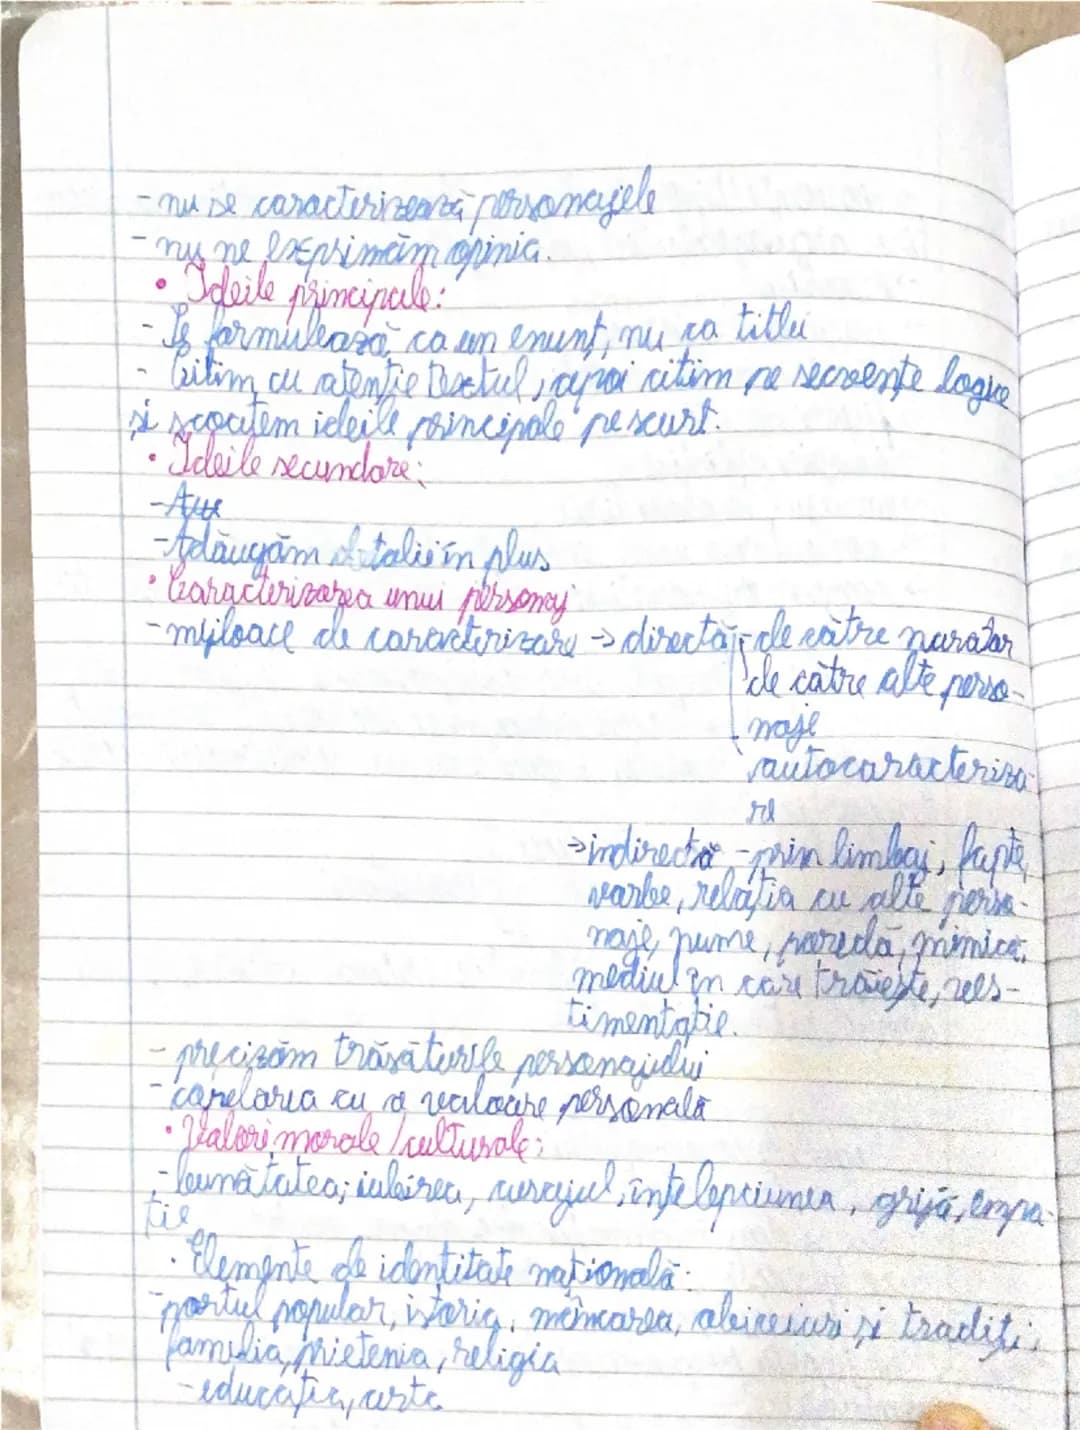 - nu se caracterizează personajele
- nu ne exprimăm opinia.
• Ideile principale:
- Se formulează ca un enunț, nu ca titlu
- Citim cu atenție textul, apoi citim pe secvențe logice
și scoatem ideile principale pe scurt.
• Ideile secundare:
- Adăugăm detalii în plus
• Caracterizarea unui personaj
- mijloace de caracterizare → directă - de către narator
de către alte perso-
naje
autocaracteriza
re
→ indirectă - prin limbaj, fapte,
vorbe, relația cu alte perso-
naje, nume, poreclă, mimică,
mediul în care trăiește, ves-
timentație.
- precizăm trăsăturile personajului
- corelarea cu o valoare personală
• Valori morale / culturale:
- bunătatea; iubirea, curajul, înțelepciunea, grijă, empa-
tie
• Elemente de identitate națională:
- portul popular, istoria, mâncarea, obiceiuri și tradiții,
familia, prietenia, religia
- educația, arta